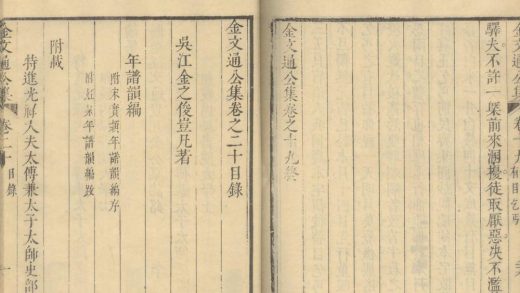 金文通公集 卷十九
驛夫不許一槩前來溷擾徒取厭惡决不濫
金文通公集卷之十九終
金文通公集卷之二十目錄
吳江金之俊豈凡著
年譜韻編
附宋實穎年譜韻編序
年譜韻編跋
附載
特進光祿大夫太傅兼太子太師吏部
金文通公集 卷二十 目錄 一